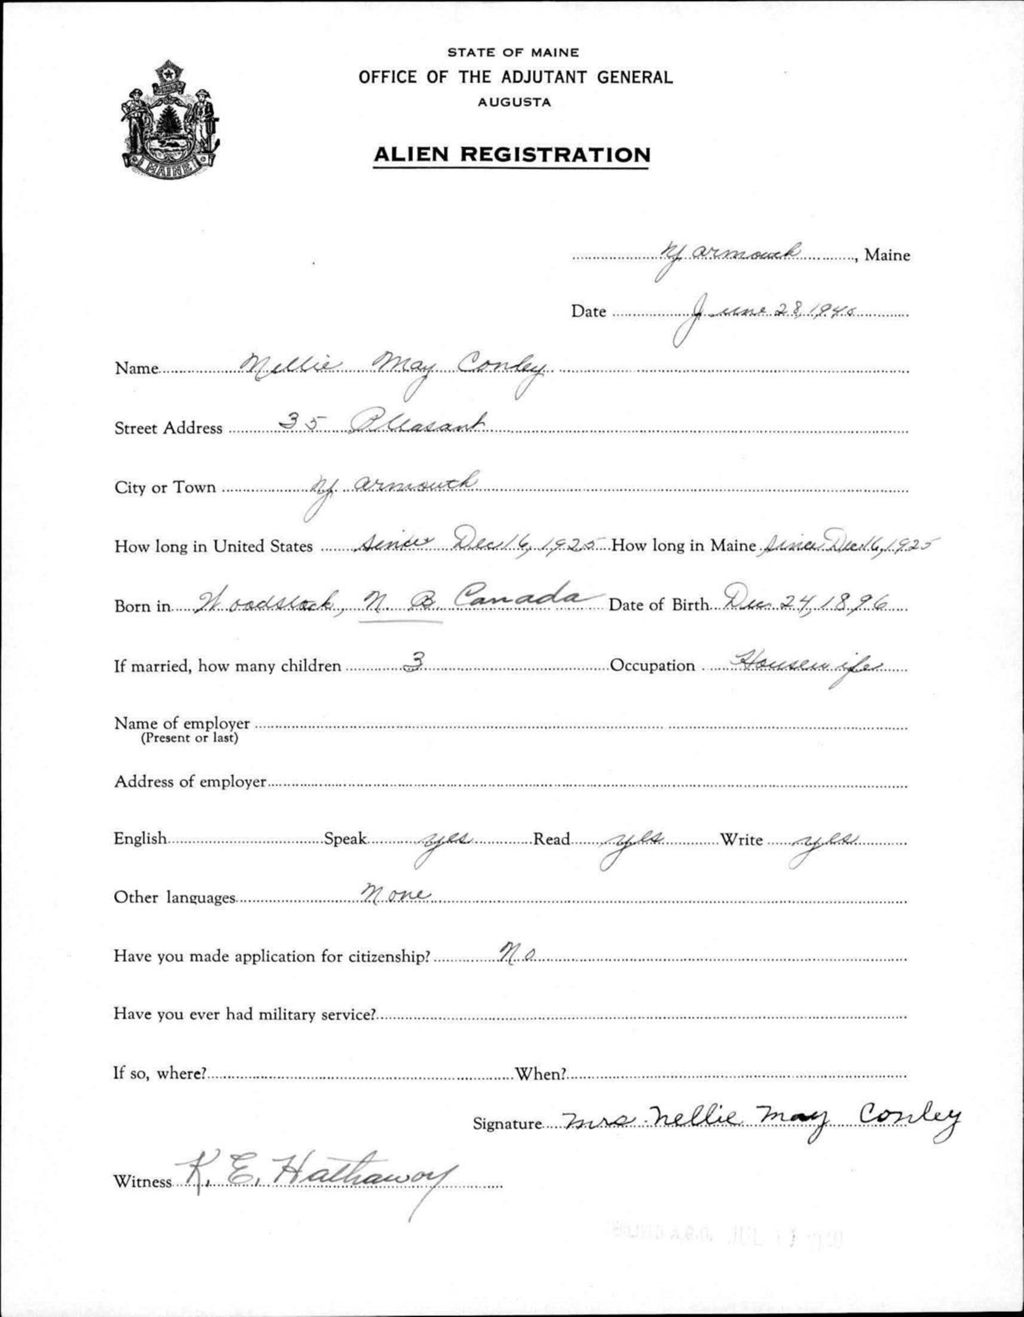 STATE OF MAINE
OFFICE OF THE ADJUTANT GENERAL
AUGUSTA
ALIEN REGISTRATION
MAINE
Yarmouth, Maine
Date June 28, 1940
Name Nellie May Conley
Street Address 35 Pleasant
City or Town Yarmouth
How long in United States since Dec 16, 1925 How long in Maine since Dec 16, 1925
Born in Woodstock, N. B. Canada Date of Birth Dec 24, 1896
If married, how many children 3 Occupation Housewife
Name of employer
(Present or last)
Address of employer
English Speak yes Read yes Write yes
Other languages None
Have you made application for citizenship? No
Have you ever had military service?
If so, where? When?
Signature Mrs Nellie May Conley
Witness K. E. Hathaway